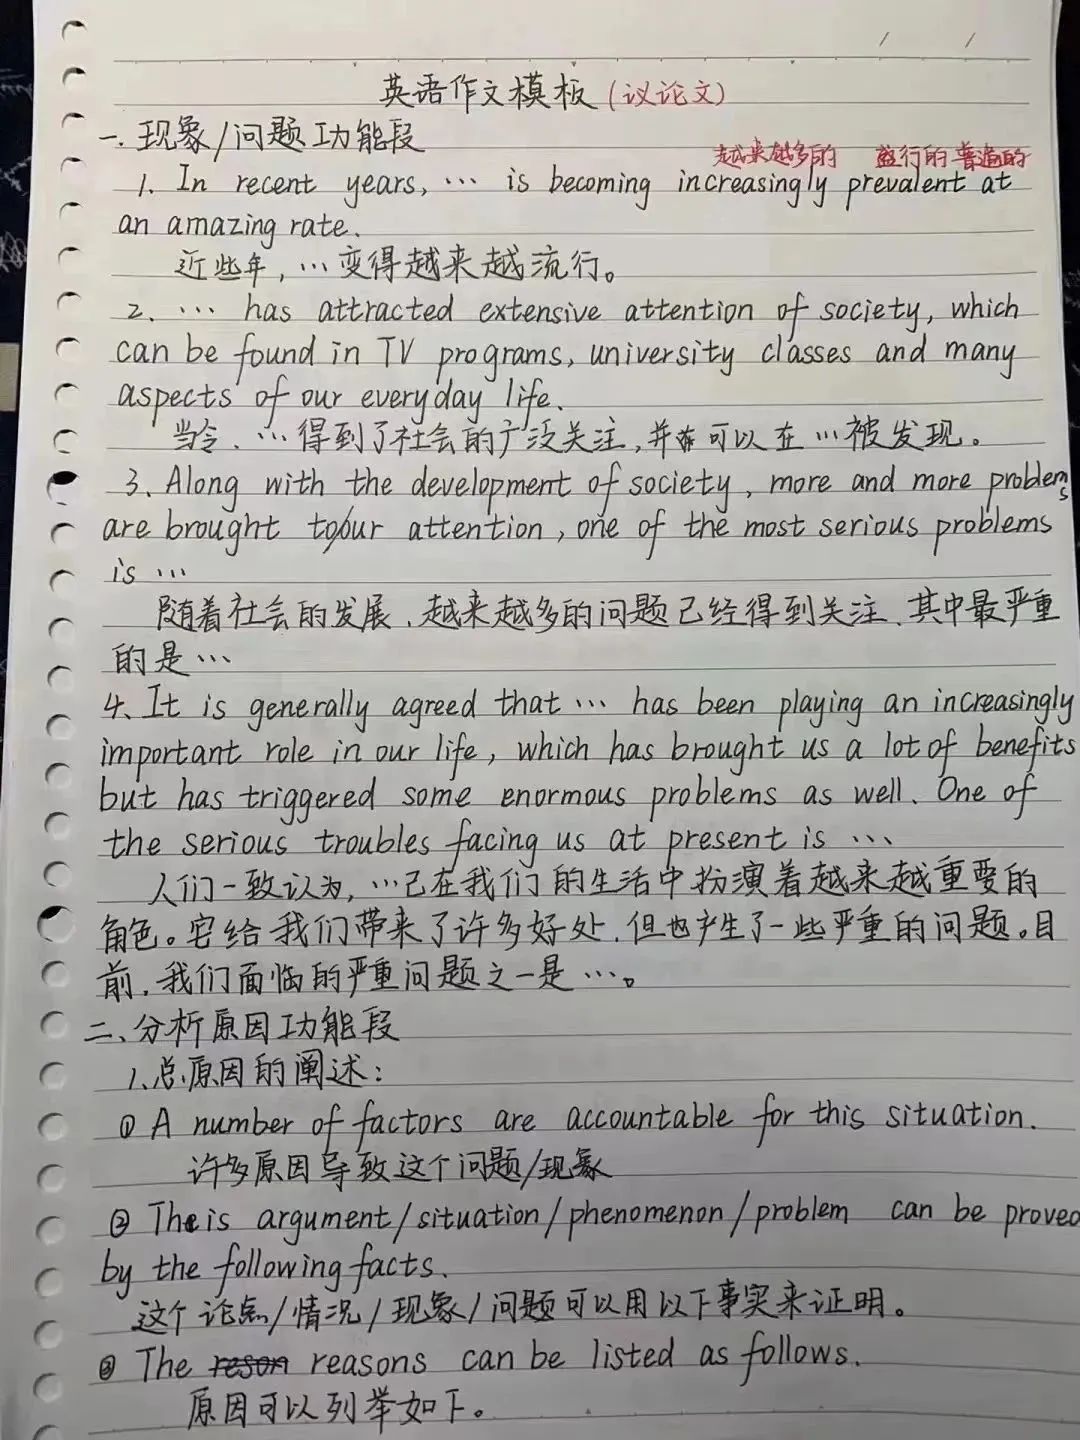 英语作文模板(议论文)
一.现象/问题功能段
越来越多的 盛行的 普遍的
1. In recent years, … is becoming increasingly prevalent at
an amazing rate.
近些年,…变得越来越流行。
2. … has attracted extensive attention of society, which
can be found in TV programs, university classes and many
aspects of our everyday life.
当今、…得到了社会的广泛关注,并 可以在…被发现。
3. Along with the development of society, more and more problems
are brought to/our attention, one of the most serious problems
is …
随着社会的发展、越来越多的问题已经得到关注、其中最严重
的是…
4. It is generally agreed that … has been playing an increasingly
important role in our life, which has brought us a lot of benefits
but has triggered some enormous problems as well. One of
the serious troubles facing us at present is …
人们一致认为,…已在我们的生活中扮演着越来越重要的
角色。它给我们带来了许多好处、但也产生了一些严重的问题。目
前,我们面临的严重问题之一是…。
二、分析原因功能段
1、总原因的阐述:
① A number of factors are accountable for this situation.
许多原因导致这个问题/现象
② This argument/situation/phenomenon/problem can be proved
by the following facts.
这个论点/情况/现象/问题可以用以下事实来证明。
③ The reson reasons can be listed as follows.
原因可以列举如下。